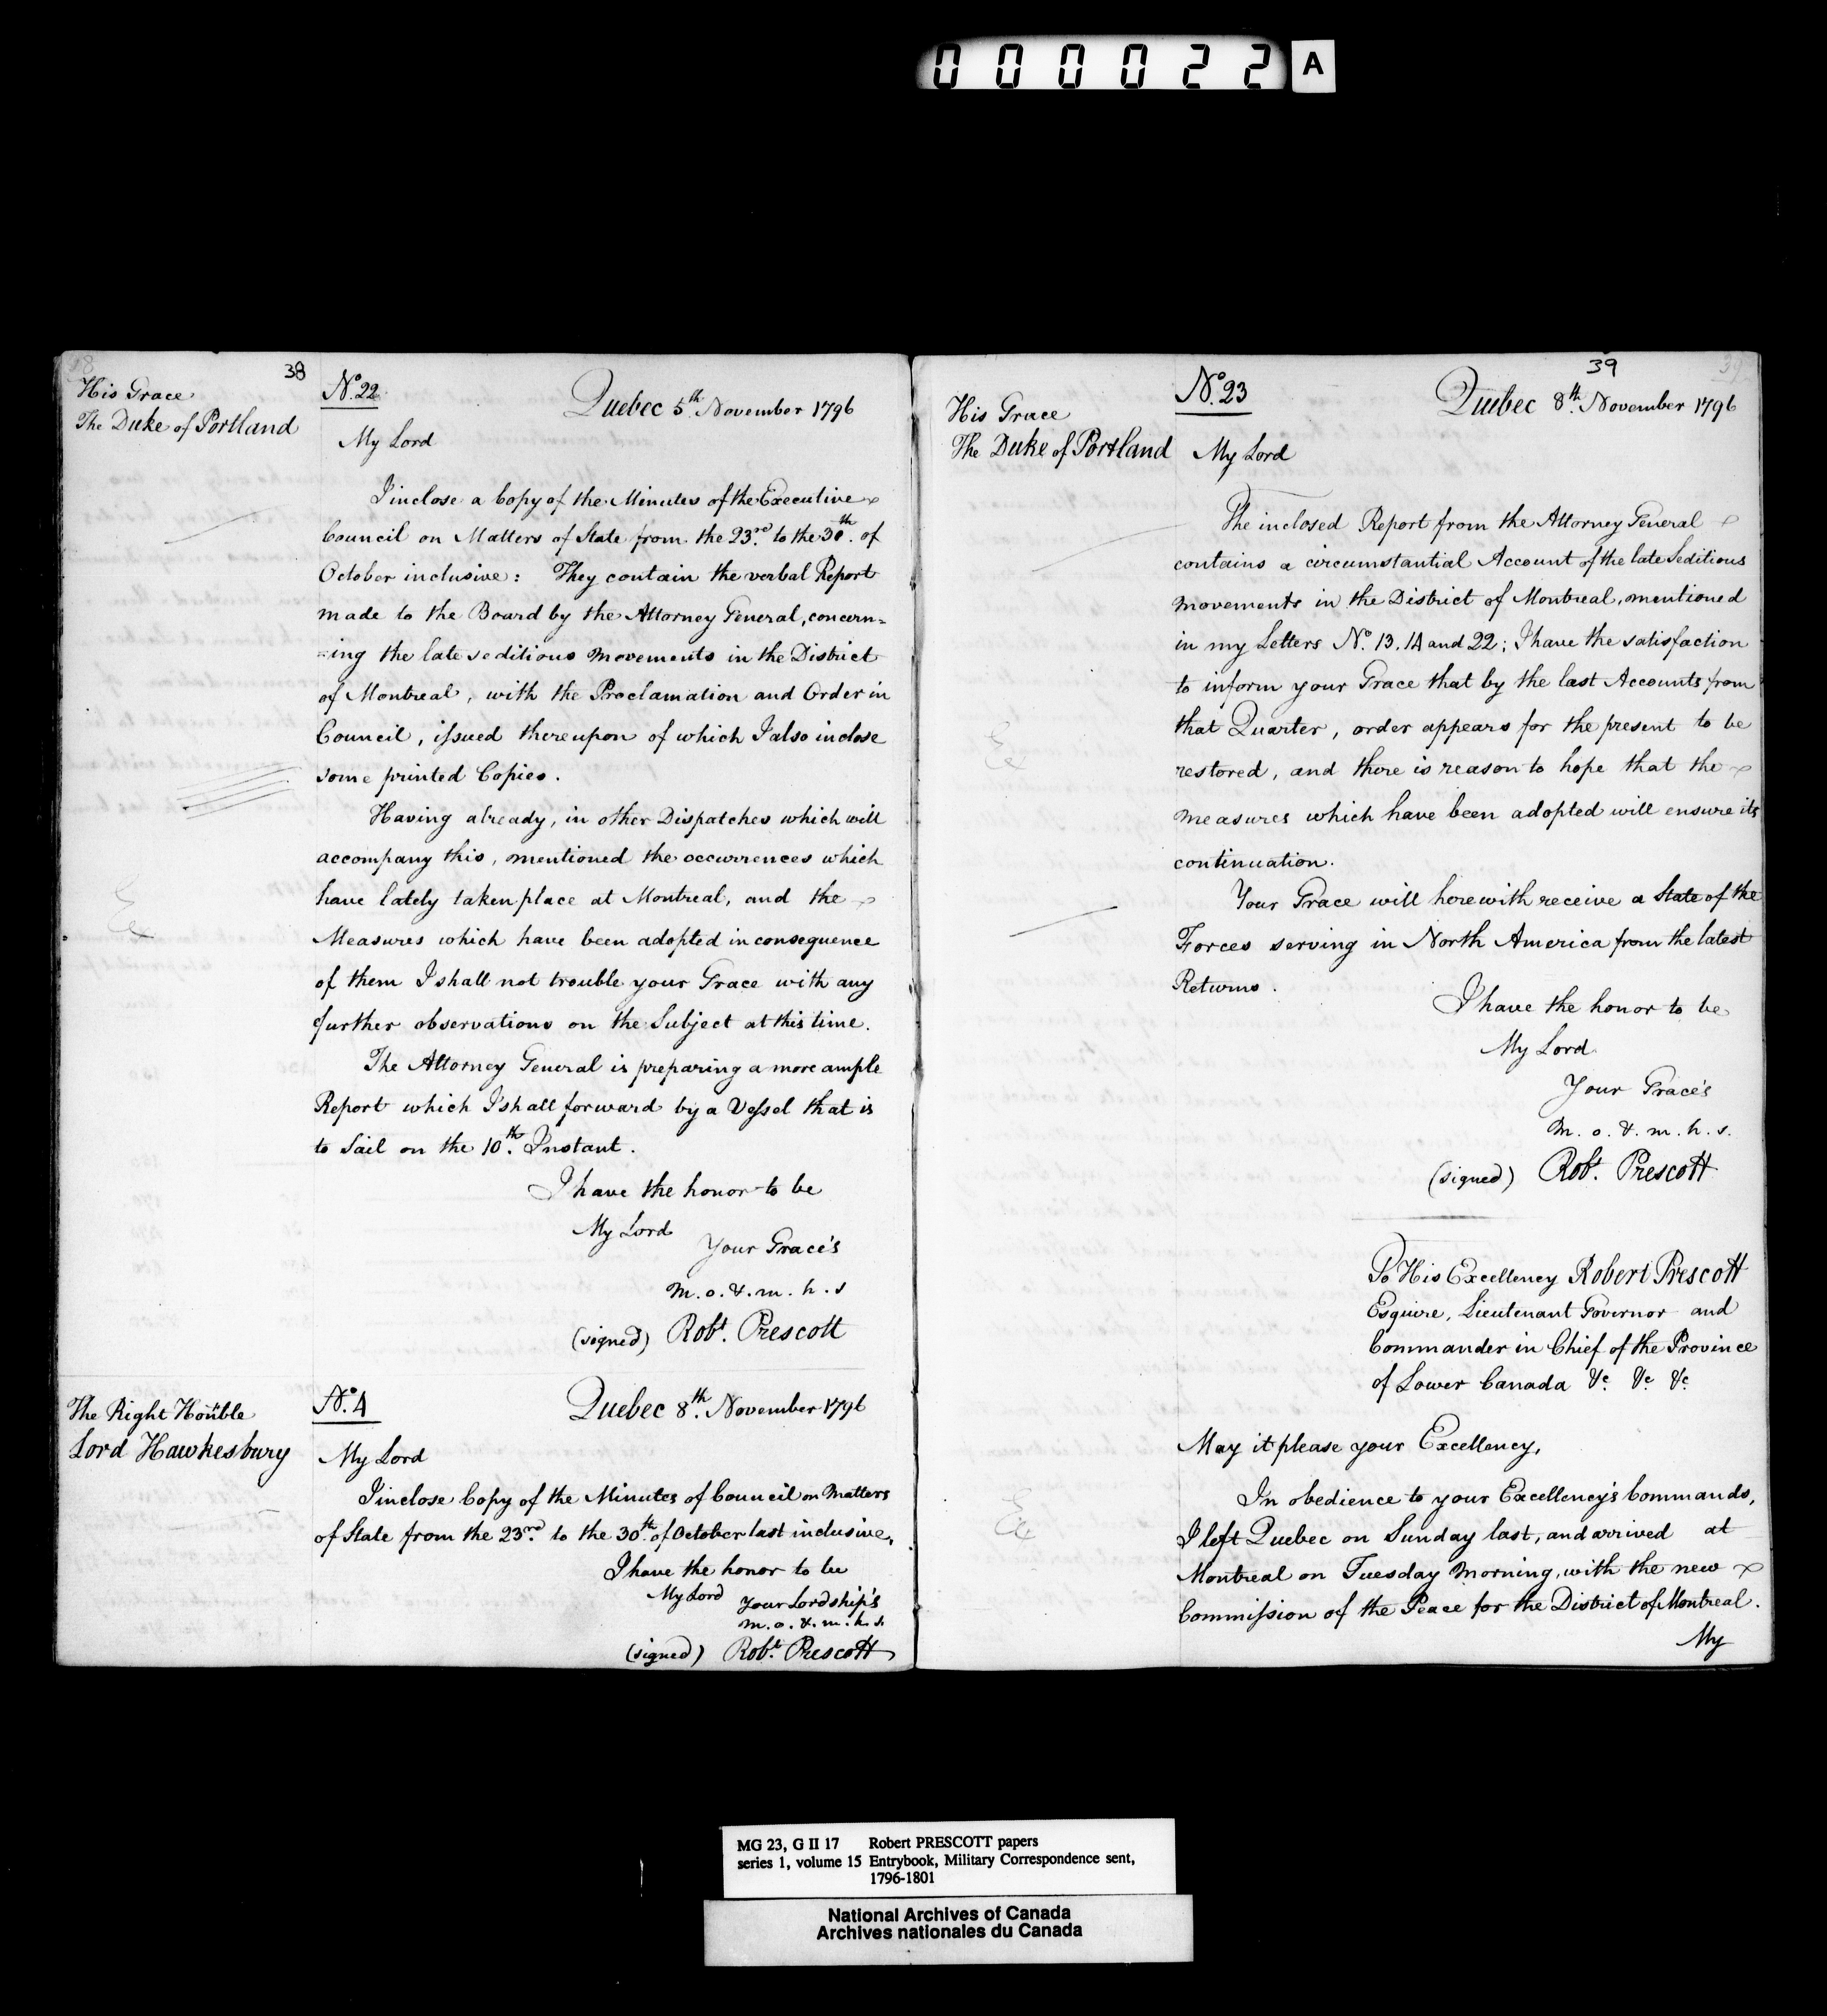 0 0 0 0 2 2 A
38
His Grace
The Duke of Portland
No. 22
Quebec 5th. November 1796
My Lord
I inclose a Copy of the Minutes of the Executive
Council on Matters of State from the 23rd. to the 30th. of
October inclusive: They contain the verbal Report
made to the Board by the Attorney General, concern=
=ing the late seditious movements in the District
of Montreal, with the Proclamation and Order in
Council, issued thereupon of which I also inclose
some printed Copies.
Having already, in other Dispatches which will
accompany this, mentioned the occurrences which
have lately taken place at Montreal, and the
Measures which have been adopted in consequence
of them I shall not trouble your Grace with any
further observations on the Subject at this time.
The Attorney General is preparing a more ample
Report which I shall forward by a Vessel that is
to Sail on the 10th. Instant.
I have the honor to be
My Lord
Your Grace's
m. o. & m. h. s
(signed) Robt. Prescott
The Right Honble
Lord Hawkesbury
No. 4
Quebec 8th. November 1796
My Lord
I inclose Copy of the Minutes of Council on Matters
of State from the 23rd. to the 30th. of October last inclusive,
I have the honor to be
My Lord Your Lordship's
m. o. & m. h. s.
(signed) Robt. Prescott
39
39
His Grace
The Duke of Portland
No. 23
Quebec 8th. November 1796
My Lord
The inclosed Report from the Attorney General
contains a circumstantial Account of the late Seditious
movements in the District of Montreal, mentioned
in my Letters No. 13. 14 and 22; I have the satisfaction
to inform your Grace that by the last Accounts from
that Quarter, order appears for the present to be
restored, and there is reason to hope that the
measures which have been adopted will ensure its
continuation.
Your Grace will herewith receive a State of the
Forces serving in North America from the latest
Returns.
I have the honor to be
My Lord
Your Grace's
m. o. & m. h. s.
(signed) Robt. Prescott
To His Excellency Robert Prescott
Esquire, Lieutenant Governor and
Commander in Chief of the Province
of Lower Canada &c. &c. &c.
May it please your Excellency,
In obedience to your Excellency's Commands,
I left Quebec on Sunday last, and arrived at
Montreal on Tuesday morning, with the new
Commission of the Peace for the District of Montreal.
My
MG 23, G II 17 Robert PRESCOTT papers
series 1, volume 15 Entrybook, Military Correspondence sent,
1796-1801
National Archives of Canada
Archives nationales du Canada